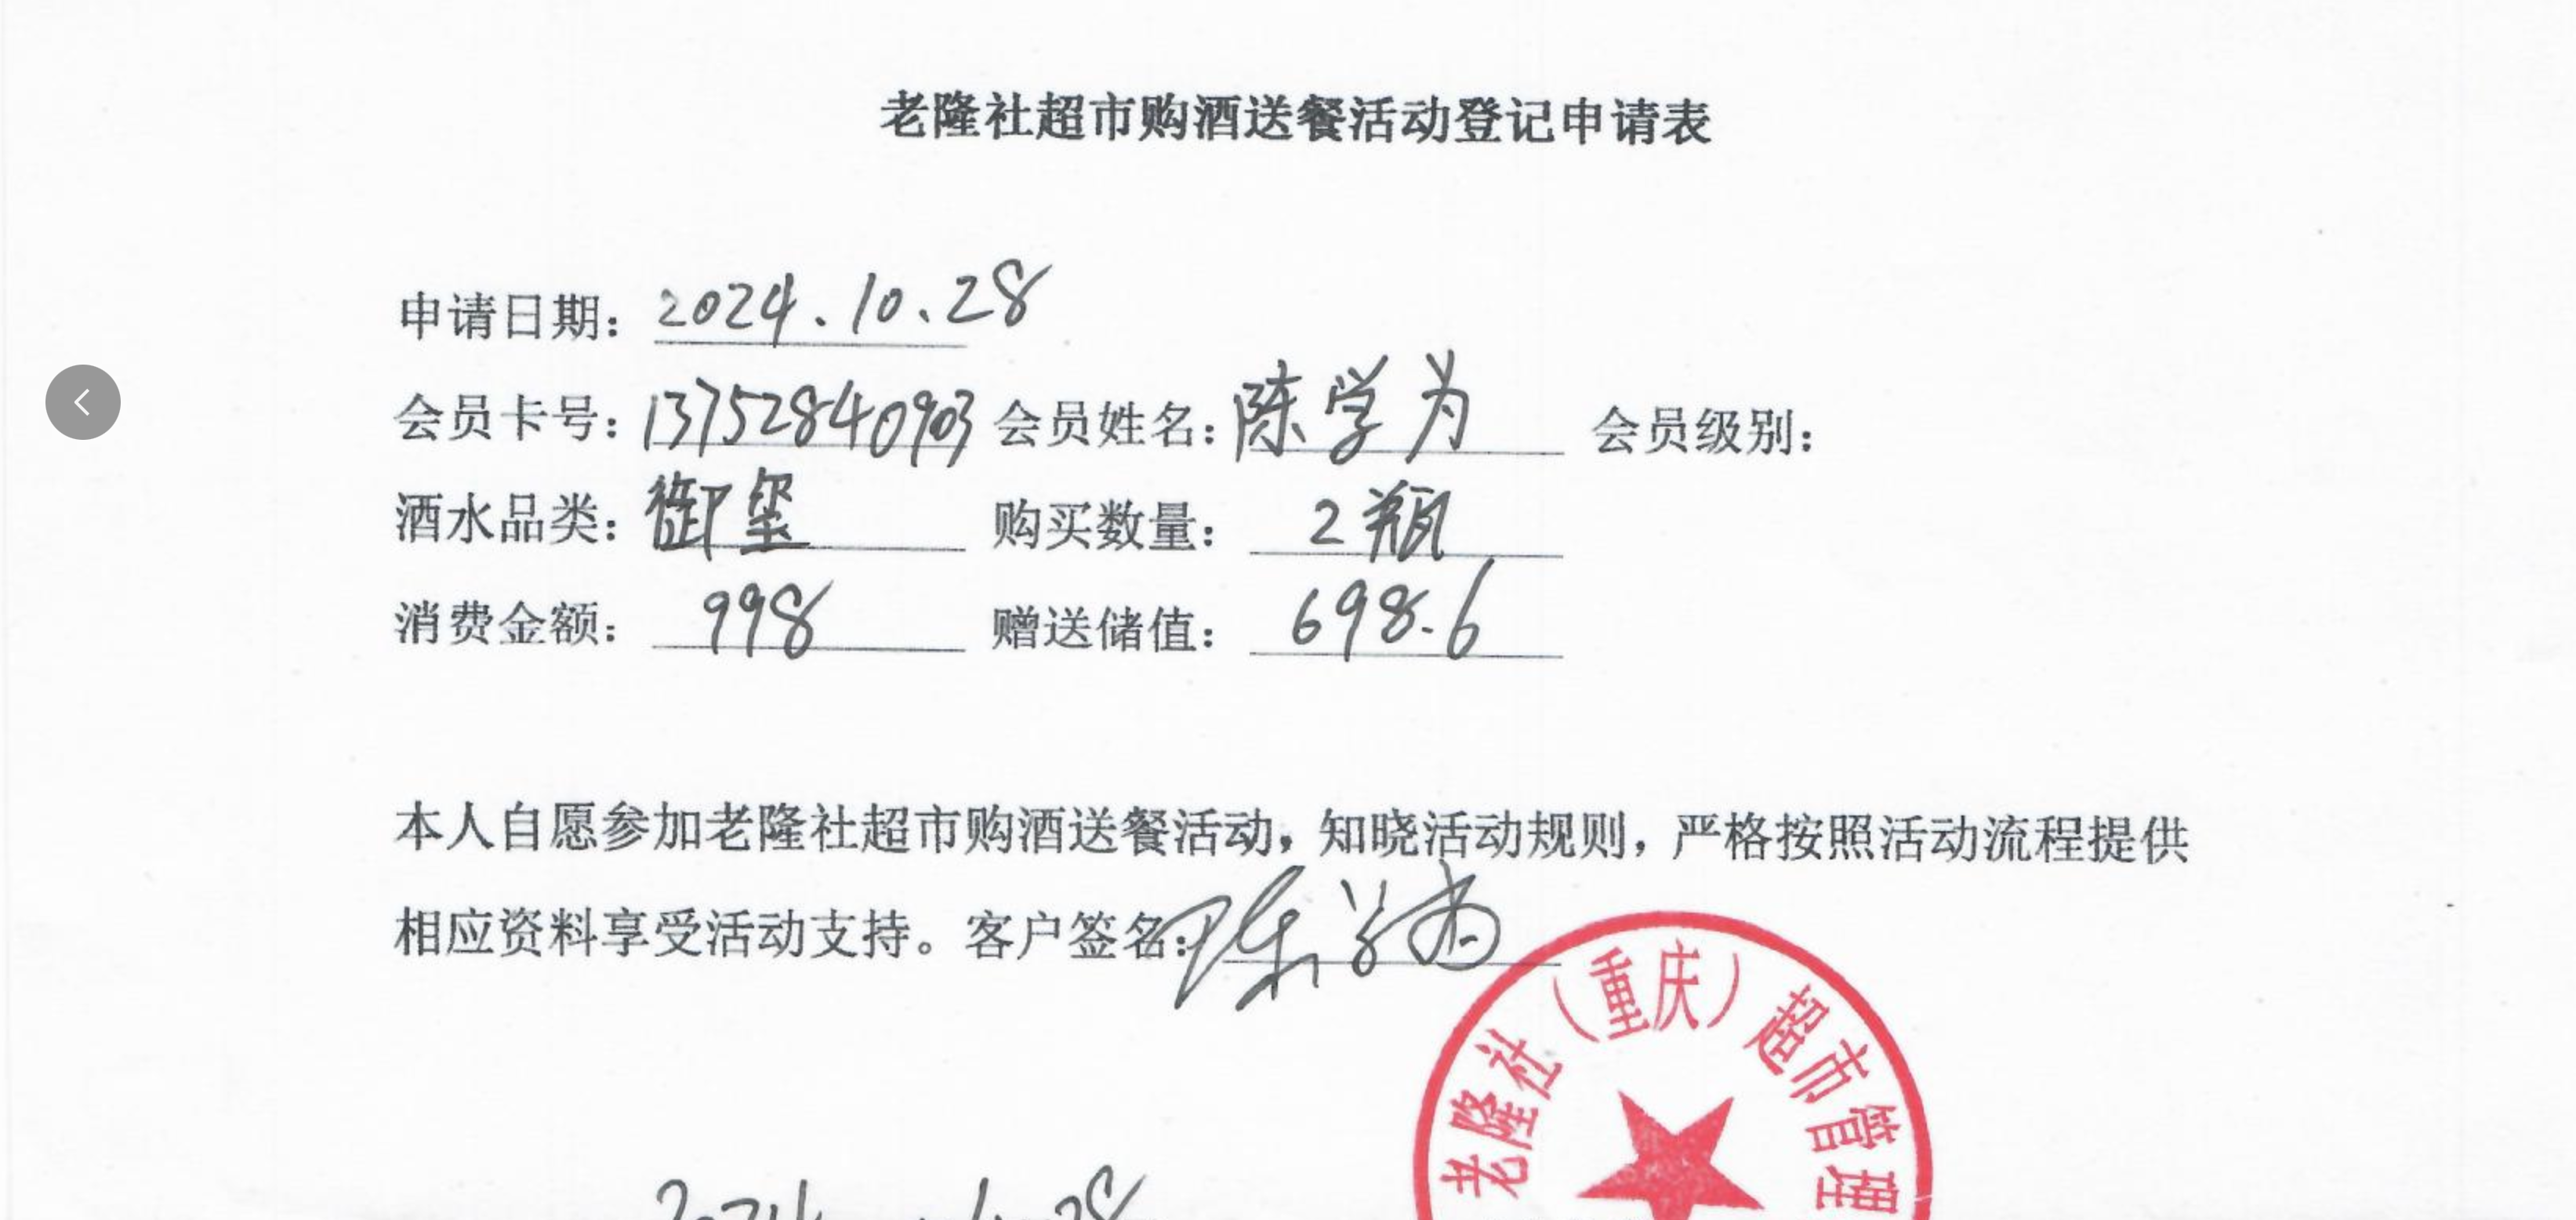 老隆社超市购酒送餐活动登记申请表
申请日期：2024.10.28
会员卡号：13752840903 会员姓名：陈学为 会员级别：
酒水品类：御玺 购买数量：2瓶
消费金额：998 赠送储值：698.6
本人自愿参加老隆社超市购酒送餐活动，知晓活动规则，严格按照活动流程提供
相应资料享受活动支持。客户签名：陈学为
老隆社（重庆）超市管理